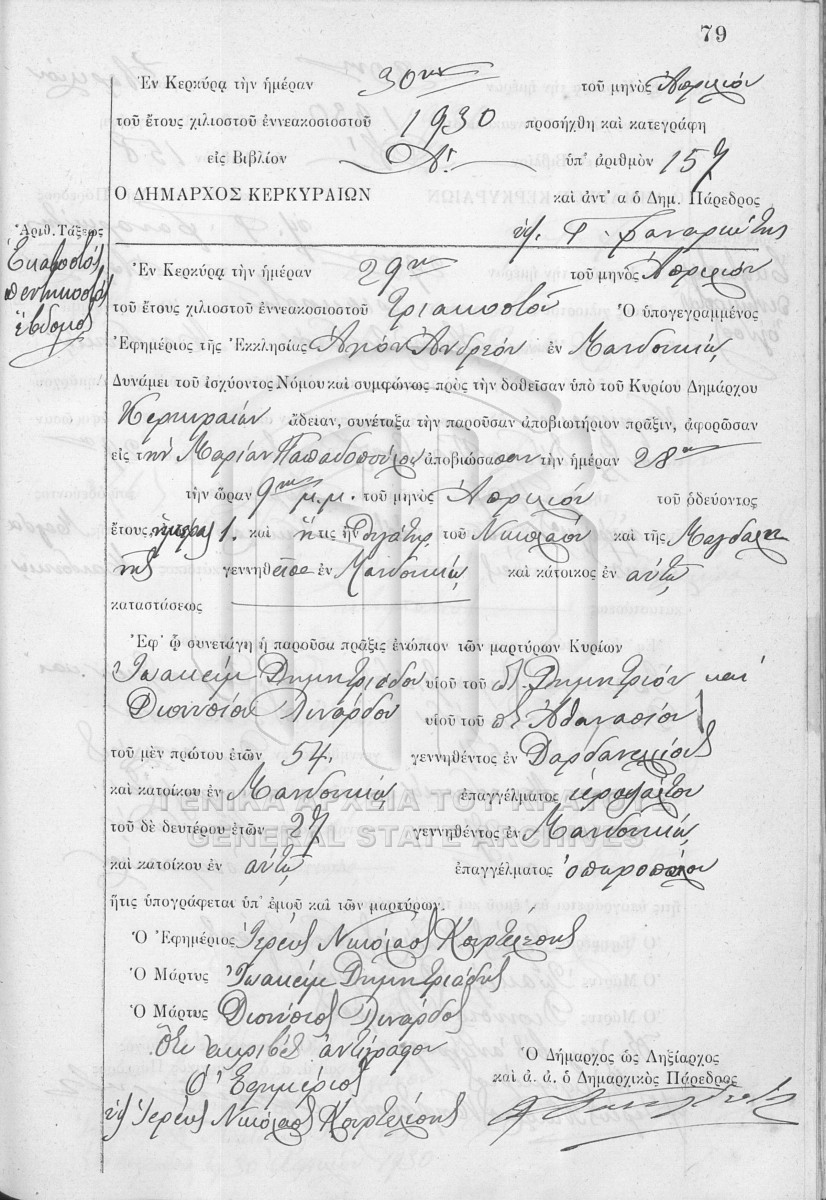 79
Ἐν Κερκύρᾳ τὴν ἡμέραν 30ην τοῦ μηνὸς Ἀπριλίου
τοῦ ἔτους χιλιοστοῦ ἐννεακοσιοστοῦ 1930 προσήχθη καὶ κατεγράφη
εἰς Βιβλίον Α' ὑπ' ἀριθμὸν 157
Ο ΔΗΜΑΡΧΟΣ ΚΕΡΚΥΡΑΙΩΝ καὶ ἀντ' α ὁ Δημ. Πάρεδρος
Ἀριθ. Τάξεως
Ἑκατοστός
πεντηκοστός
ἕβδομος
Ἐν Κερκύρᾳ τὴν ἡμέραν 29ην τοῦ μηνὸς Ἀπριλίου
τοῦ ἔτους χιλιοστοῦ ἐννεακοσιοστοῦ τριακοστοῦ Ὁ ὑπογεγραμμένος
Ἐφημέριος τῆς Ἐκκλησίας Ἁγίου Ἀνδρέου ἐν Μανδουκίῳ
Δυνάμει τοῦ ἰσχύοντος Νόμου καὶ συμφώνως πρὸς τὴν δοθεῖσαν ὑπὸ τοῦ Κυρίου Δημάρχου
Κερκυραίων ἄδειαν, συνέταξα τὴν παροῦσαν ἀποβιωτήριον πρᾶξιν, ἀφορῶσαν
εἰς τὴν Μαρίαν Παπαδοπούλου ἀποβιώσασαν τὴν ἡμέραν 28ην
τὴν ὥραν 9ην μ.μ. τοῦ μηνὸς Ἀπριλίου τοῦ ὁδεύοντος
ἔτους, ἡμέρας 1. καὶ ἥτις ἦν θυγάτηρ τοῦ Νικολάου καὶ τῆς Μαγδαλη
νῆς γεννηθεῖσα ἐν Μανδουκίῳ καὶ κάτοικος ἐν αὐτῷ
καταστάσεως
Ἐφ' ᾧ συνετάγη ἡ παροῦσα πρᾶξις ἐνώπιον τῶν μαρτύρων Κυρίων
Ἰωακεὶμ Δημητριάδου υἱοῦ τοῦ Δημητρίου καὶ
Διονυσίου Λινάρδου υἱοῦ τοῦ Ἀθανασίου
τοῦ μὲν πρώτου ἐτῶν 54. γεννηθέντος ἐν Δαρδανελλίοις
καὶ κατοίκου ἐν Μανδουκίῳ ἐπαγγέλματος ἱεροψάλτου
τοῦ δὲ δευτέρου ἐτῶν 27 γεννηθέντος ἐν Μανδουκίῳ
καὶ κατοίκου ἐν αὐτῷ ἐπαγγέλματος ὀπωροπώλου
ἥτις ὑπογράφεται ὑπ' ἐμοῦ καὶ τῶν μαρτύρων.
Ὁ Ἐφημέριος Ἱερεὺς Νικόλαος Κουρτελέσης
Ὁ Μάρτυς Ἰωακεὶμ Δημητριάδης
Ὁ Μάρτυς Διονύσιος Λινάρδος
Ὅτι ἀκριβὲς ἀντίγραφον
Ὁ Ἐφημέριος
Ἱερεὺς Νικόλαος Κουρτελέσης
Ὁ Δήμαρχος ὡς Ληξίαρχος
καὶ ἀ. ἀ. ὁ Δημαρχικὸς Πάρεδρος
ΓΕΝΙΚΑ ΑΡΧΕΙΑ ΤΟΥ ΚΡΑΤΟΥΣ
GENERAL STATE ARCHIVES